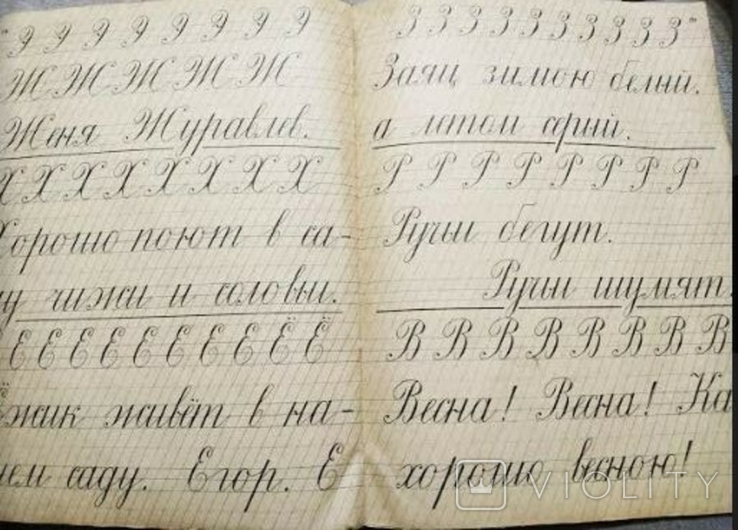 Ж Ж Ж Ж Ж
Женя Журавлев.
Х Х Х Х Х Х Х Х
Хорошо поют в са-
ду чижи и соловьи.
Е Е Е Е Е Е Е Е Ё Ё
Ёжик живёт в на-
шем саду. Егор. Е
З З З З З З З З З З"
Заяц зимою белый.
а летом серый.
Р Р Р Р Р Р Р Р
Ручьи бегут.
Ручьи шумят.
В В В В В В В В
Весна! Весна! Ка
хорошо весною!
VIOLITY